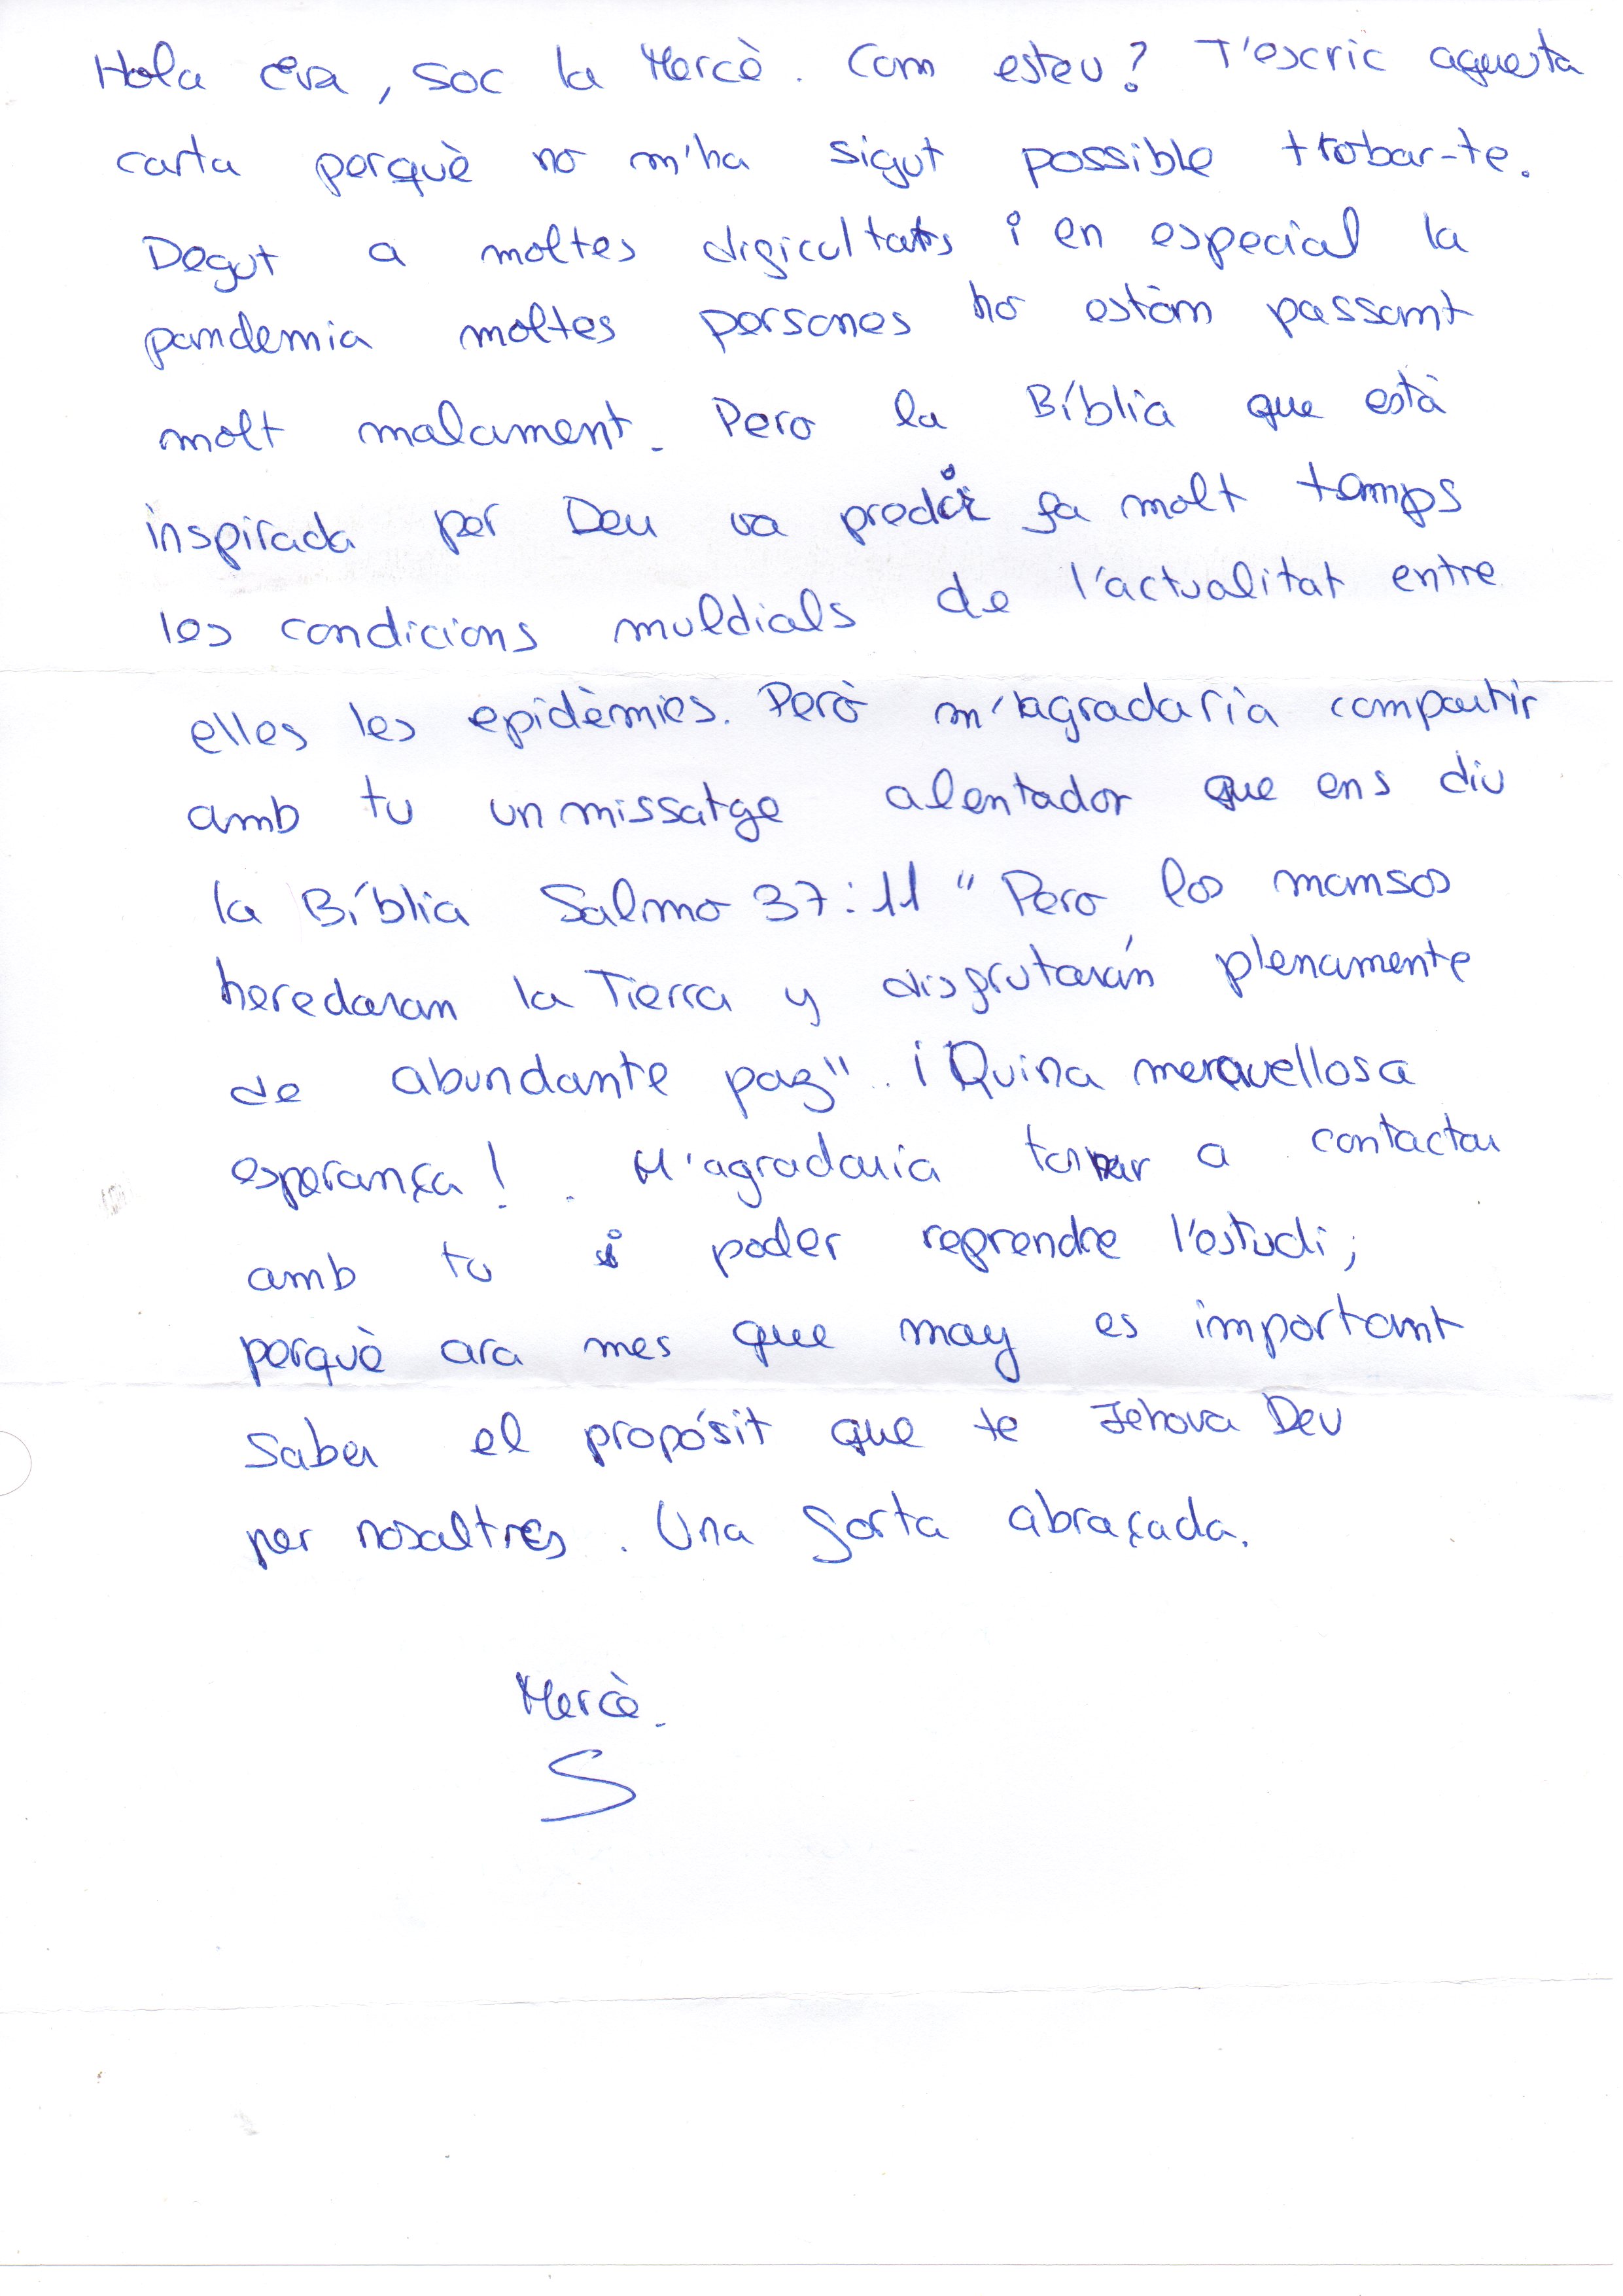 Hola Eva, soc la Mercè. Com esteu? T'escric aquesta
carta perquè no m'ha sigut possible trobar-te.
Degut a moltes dificultats i en especial la
pandemia moltes persones ho estàn passant
molt malament. Pero la Bíblia que està
inspirada per Deu va predir fa molt temps
les condicions muldials de l'actualitat entre
elles les epidèmies. Però m'agradaria compartir
amb tu un missatge alentador que ens diu
la Bíblia Salmo 37:11 "Pero los mansos
heredaran la Tierra y disfrutarán plenamente
de abundante paz". ¡Quina meravellosa
esperança!. M'agradaria tornar a contactar
amb tu i poder reprendre l'estudi;
perquè ara mes que may es important
Saber el propósit que te Jehova Deu
per nosaltres. Una forta abraçada.
Mercè.